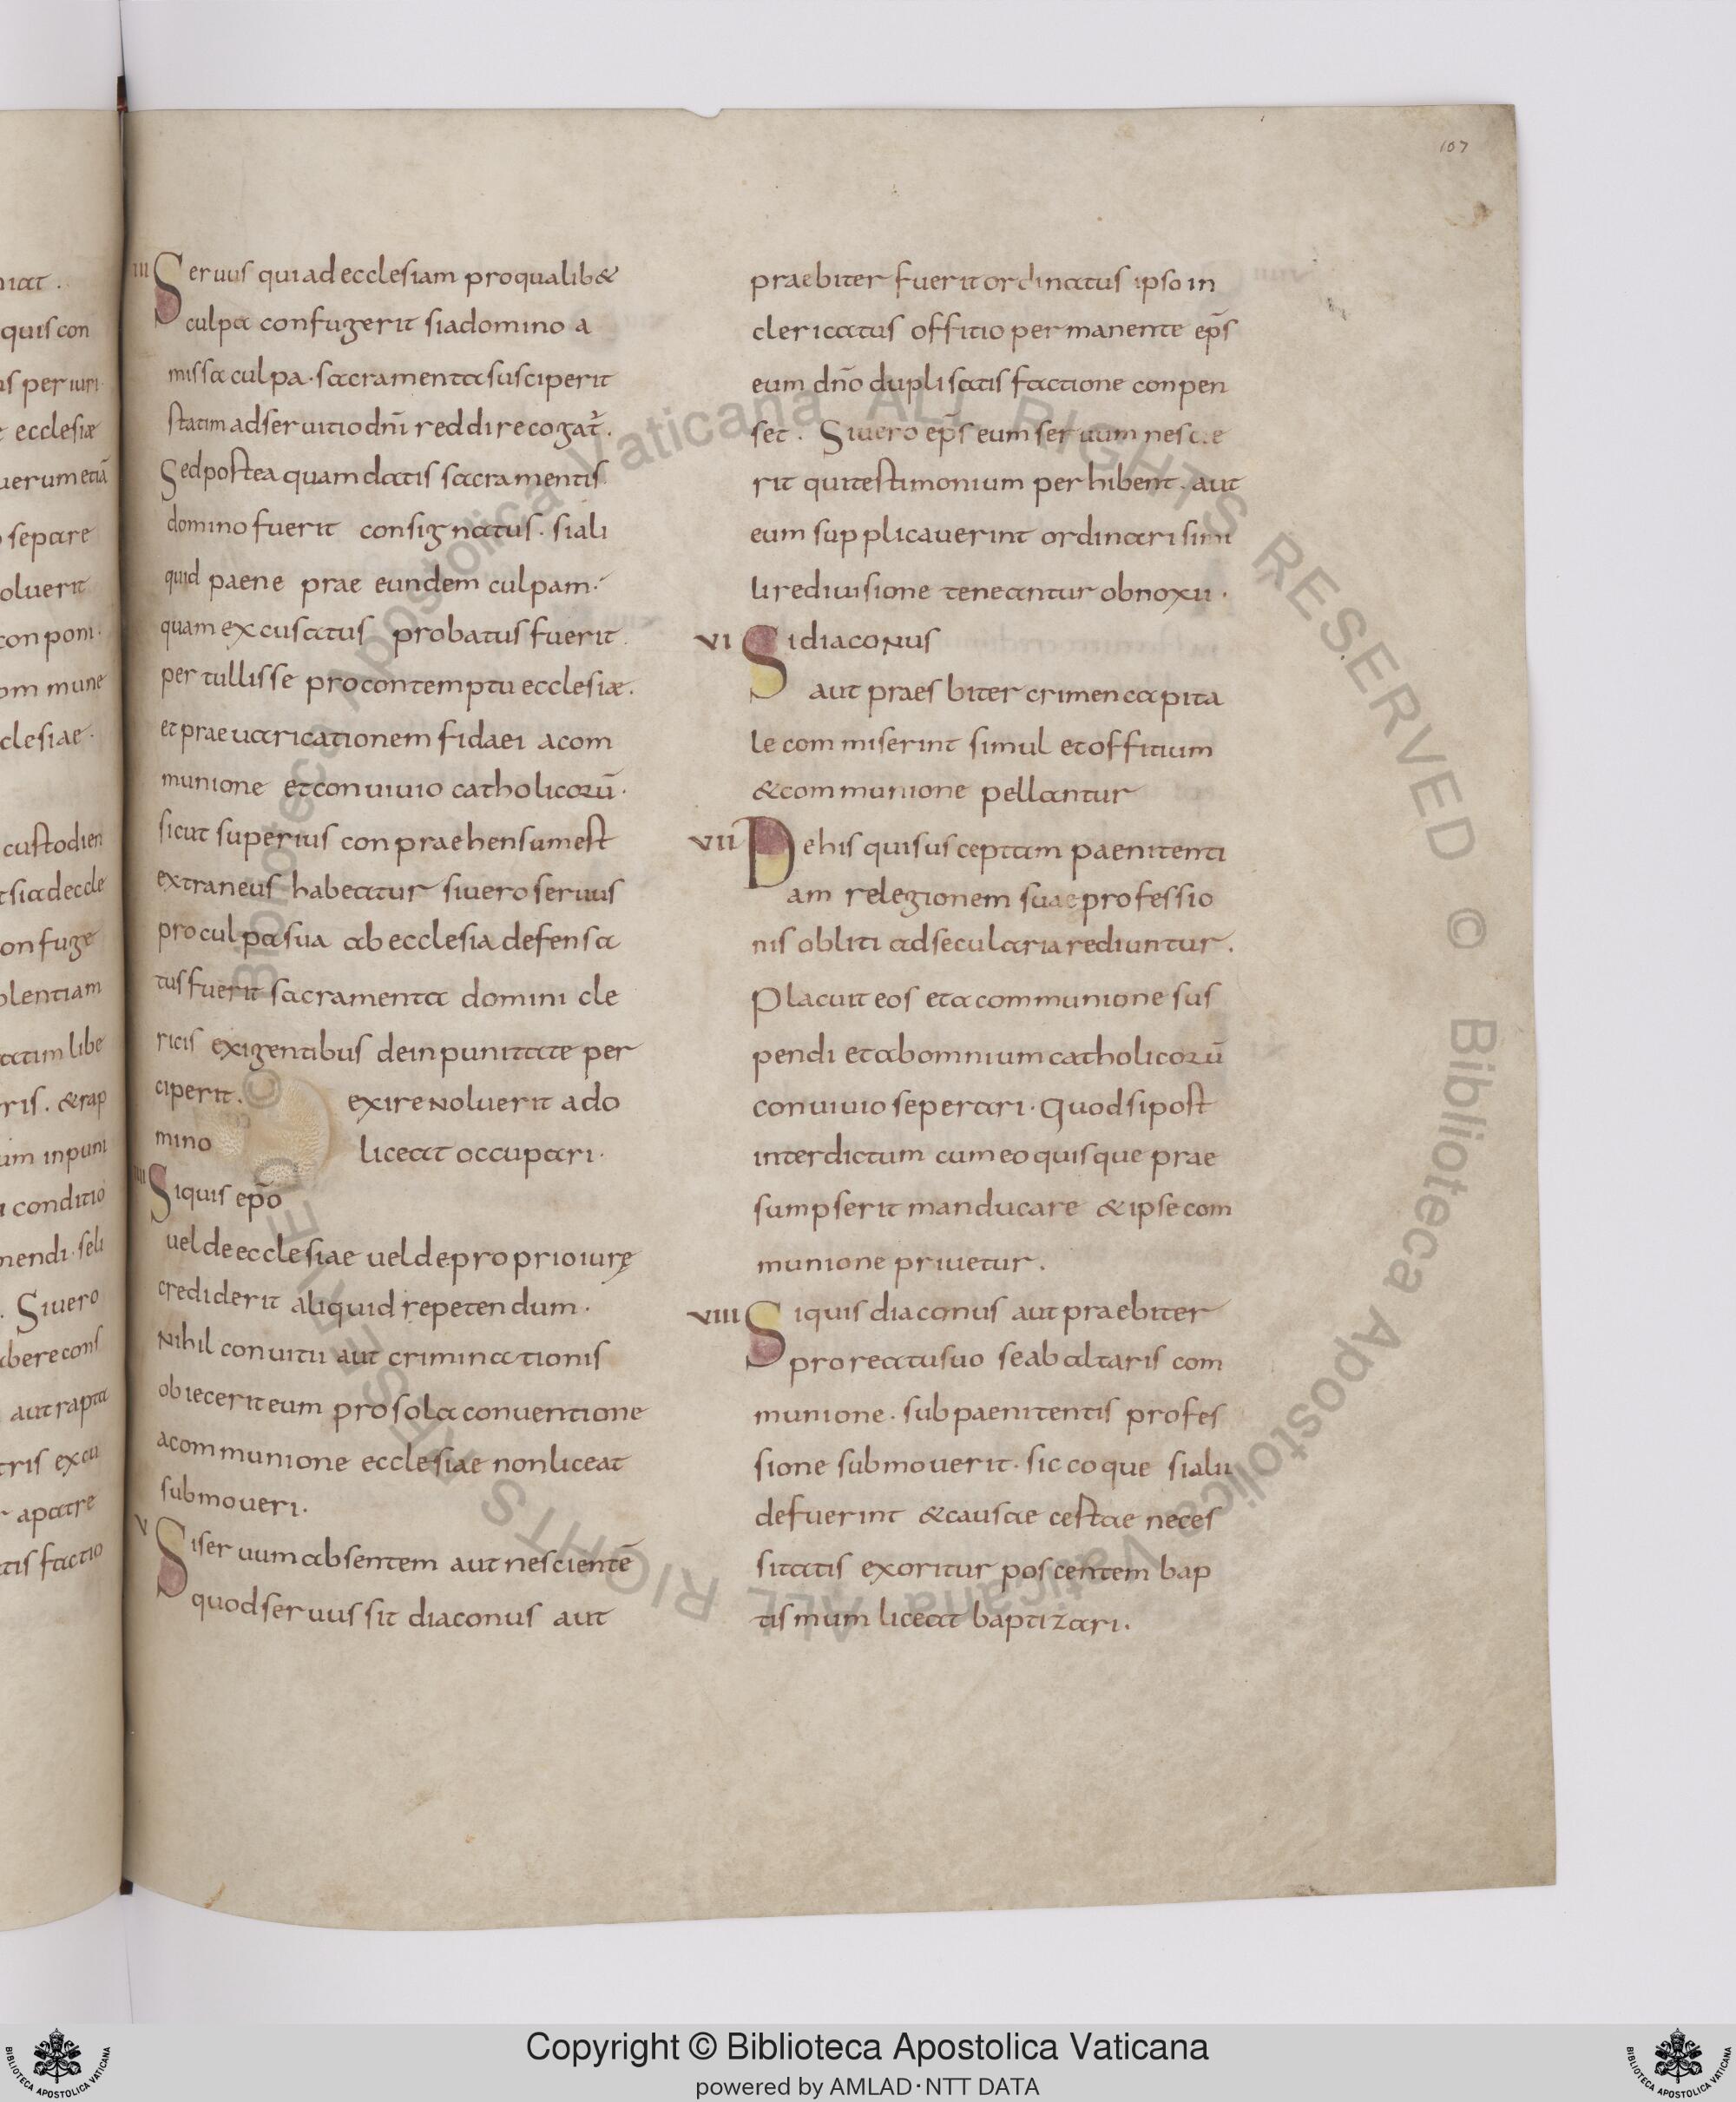 107
niat.
quis con
us periuri
ecclesiæ
uerum etiā
separe
oluerit
con poni.
om mune
clesiae.
custodien
t siadeccle
onfuge
olentiam
tatim libe
ris. & rap
um inpuni
conditio
mendi. seli
. Siuero
bere cons
aut rapta
tris excu
r apatre
tis factio
III Seruus qui ad ecclesiam pro qualib&
culpa confugerit si adomino a
missa culpa. sacramenta susciperit
statim ad seruitio dnī reddire cogat̄.
Sed postea quam datis sacramentis
domino fuerit consignatus. si ali
quid paene prae eundem culpam.
quam excusatus probatus fuerit.
per tullisse pro contemptu ecclesiæ.
et praeuaricationem fidaei acom
munione et conuiuio catholicorū.
sicut superius con praehensum est
extraneus habeatur siuero seruus
pro culpa sua ab ecclesia defensa
tus fuerit sacramenta domini cle
ricis exigentibus de inpunitate per
ciperit. exire noluerit ado
mino liceat occupari.
IIII Si quis ep̄o
uel de ecclesiae uel de proprio iurę
crediderit aliquid repetendum.
Nihil conuitii aut criminationis
obiecerit eum pro sola conuentione
acommunione ecclesiae non liceat
submoueri.
V Si seruum absentem aut nescientē
quod seruus sit diaconus aut
praebiter fuerit ordinatus ipso in
clericatus offitio permanente ep̄s
eum dn̄o dupli satis factione conpen
set. Siuero ep̄s eum seruum nescie
rit qui testimonium perhibent. aut
eum supplicauerint ordinari simi
li rediuisione teneantur obnoxii.
VI Si diaconus
aut praesbiter crimen capita
le commiserint simul et offitium
& communione pellantur
VII De his qui susceptam paenitenti
am relegionem suae professio
nis obliti ad secularia rediuntur.
Placuit eos et acommunione sus
pendi et ab omnium catholicorū
conuiuio seperari. Quod si post
interdictum cum eo quisque prae
sumpserit manducare & ipse com
munione priuetur.
VIII Si quis diaconus aut praebiter
pro reatu suo se ab altaris com
munione. sub paenitentis profes
sione submouerit. sic coque si alii
defuerint & causae cestae neces
sitatis exoritur poscentem bap
tismum liceat baptizari.
© Biblioteca Apostolica Vaticana ALL RIGHTS RESERVED © Biblioteca Apostolica Vaticana ALL RIGHTS RESERVED
Copyright © Biblioteca Apostolica Vaticana
powered by AMLAD·NTT DATA
BIBLIOTECA APOSTOLICA VATICANA
BIBLIOTECA APOSTOLICA VATICANA